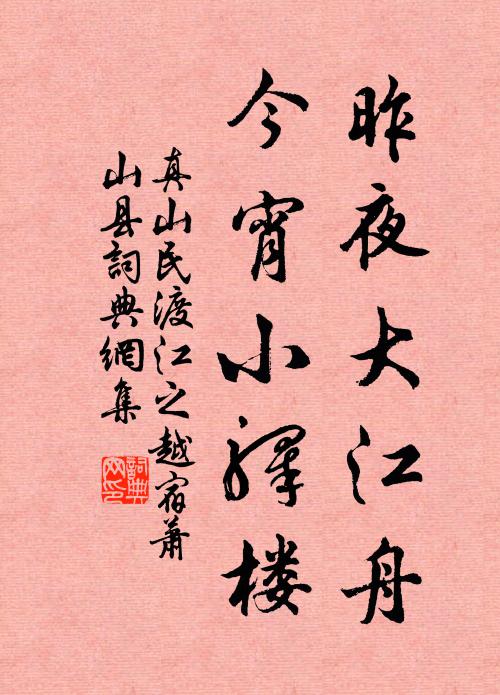 昨夜大江舟
今宵小驿楼
真山民渡江之越宿萧
山县詞典網集
詞典网印